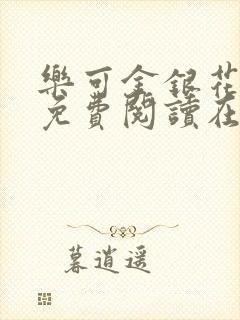 樂可金銀花
免費閱讀在
暮逍遥